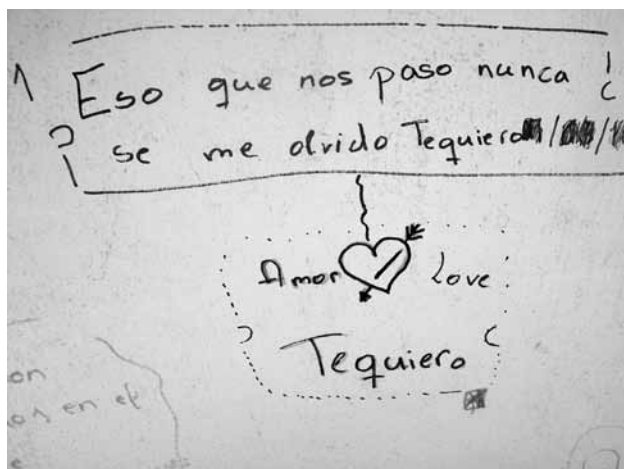 Eso que nos paso nunca
se me olvido Tequiero
Amor Love
Tequiero
on
os en el